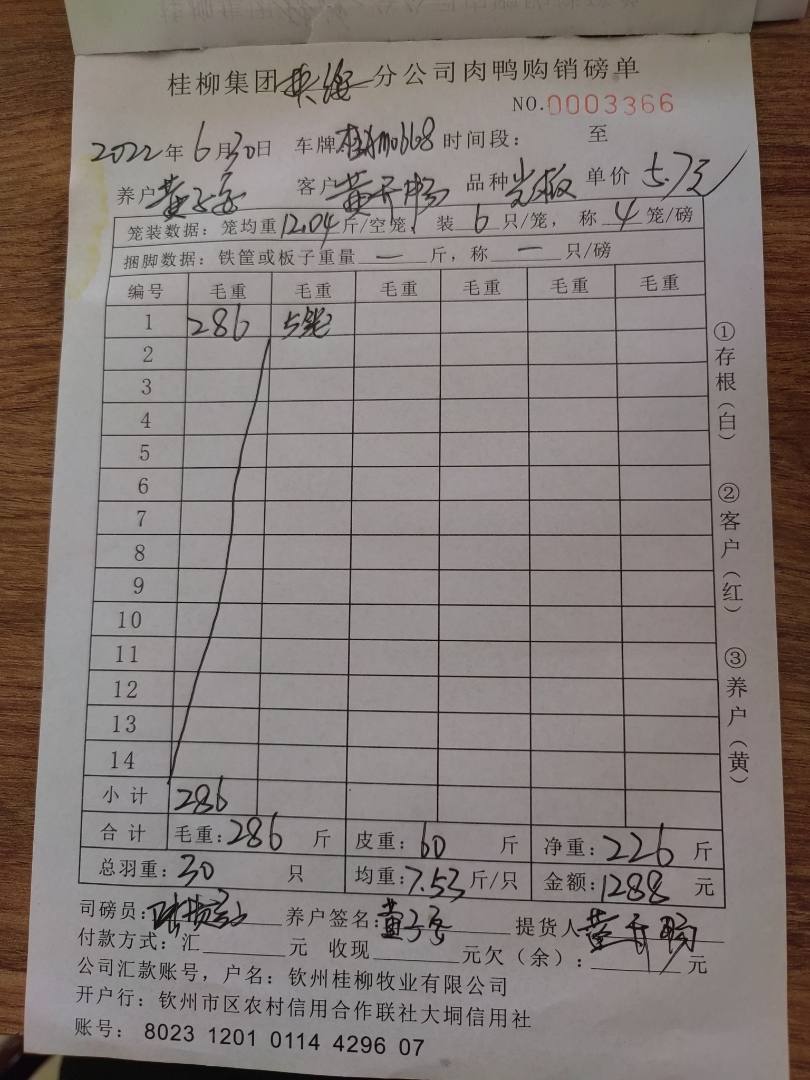 桂柳集团 分公司肉鸭购销磅单
NO.0003366
2022年6月30日 车牌 时间段： 至
养户黄 客户黄 品种光板 单价5.7元
笼装数据：笼均重12.04斤/空笼，装6只/笼，称4笼/磅
捆脚数据：铁筐或板子重量—斤，称—只/磅
编号 毛重 毛重 毛重 毛重 毛重 毛重
1 286 5笼
2
3
4
5
6
7
8
9
10
11
12
13
14
小计 286
合计 毛重：286斤 皮重：60斤 净重：226斤
总羽重：30只 均重：7.53斤/只 金额：1288元
司磅员： 养户签名：黄 提货人黄
付款方式：汇 元 收现 元欠（余）： 元
公司汇款账号，户名：钦州桂柳牧业有限公司
开户行：钦州市区农村信用合作联社大垌信用社
账号： 8023 1201 0114 4296 07
①存根（白） ②客户（红） ③养户（黄）